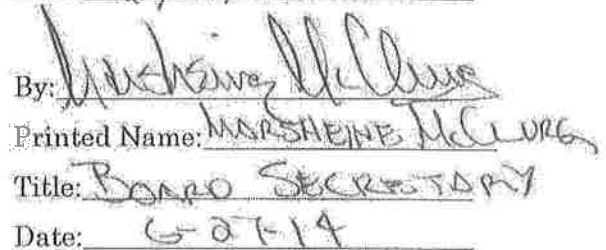 By: Marsheine McClurg
Printed Name: MARSHEINE McCLURG
Title: BOARD SECRETARY
Date: 6-27-14